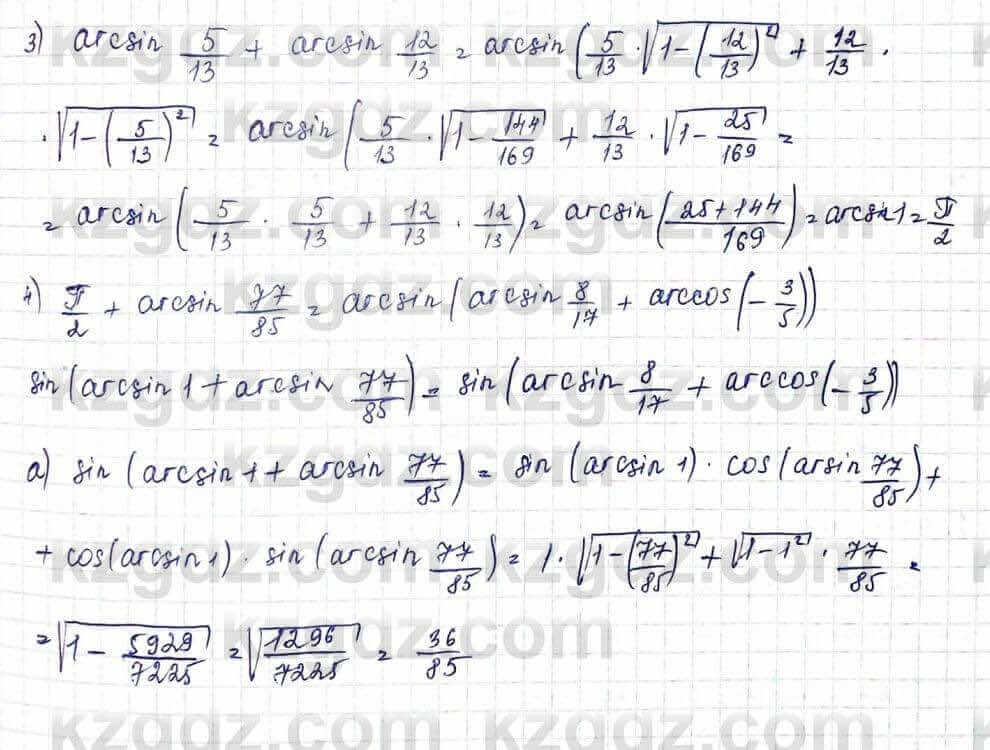 3) arcsin 5/13 + arcsin 12/13 = arcsin (5/13 · √(1-(12/13)²) + 12/13 ·
· √(1-(5/13)²) = arcsin (5/13 · √(1-144/169) + 12/13 · √(1-25/169) =
= arcsin (5/13 · 5/13 + 12/13 · 12/13) = arcsin (25+144/169) = arcsin 1 = π/2
4) π/2 + arcsin 77/85 = arcsin (arcsin 8/17 + arccos (-3/5))
sin (arcsin 1 + arcsin 77/85) = sin (arcsin 8/17 + arccos (-3/5))
a) sin (arcsin 1 + arcsin 77/85) = sin (arcsin 1) · cos (arsin 77/85) +
+ cos (arcsin 1) · sin (arcsin 77/85) = 1 · √(1-(77/85)²) + √(1-1²) · 77/85 =
= √(1 - 5929/7225) = √(1296/7225) = 36/85
kzgdz.com